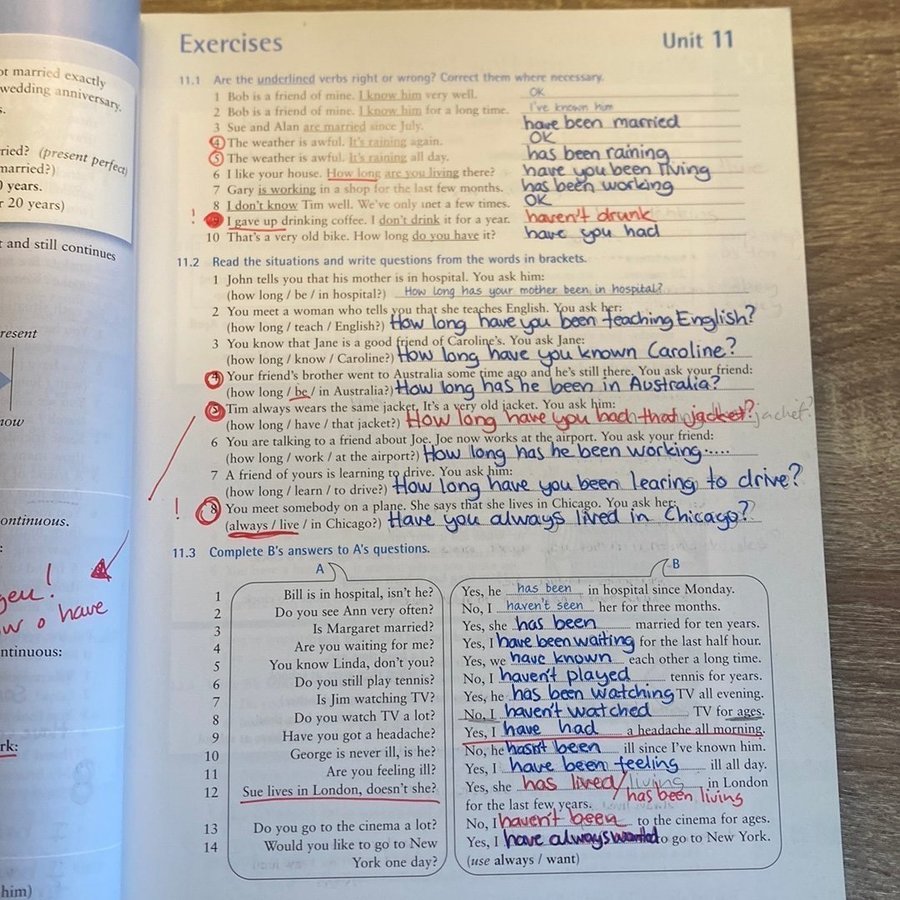 ot married exactly
wedding anniversary.
s.
ried? (present perfect)
married?)
0 years.
r 20 years)
and still continues
resent
now
ontinuous.
:
gen!
have
ntinuous:
rk:
him)
Exercises Unit 11
11.1 Are the underlined verbs right or wrong? Correct them where necessary.
1 Bob is a friend of mine. I know him very well. OK
2 Bob is a friend of mine. I know him for a long time. I've known him
3 Sue and Alan are married since July. have been married
4 The weather is awful. It's raining again. OK
5 The weather is awful. It's raining all day. has been raining
6 I like your house. How long are you living there? have you been living
7 Gary is working in a shop for the last few months. has been working
8 I don't know Tim well. We've only met a few times. OK
! 9 I gave up drinking coffee. I don't drink it for a year. haven't drunk
10 That's a very old bike. How long do you have it? have you had
11.2 Read the situations and write questions from the words in brackets.
1 John tells you that his mother is in hospital. You ask him:
(how long / be / in hospital?) How long has your mother been in hospital?
2 You meet a woman who tells you that she teaches English. You ask her:
(how long / teach / English?) How long have you been teaching English?
3 You know that Jane is a good friend of Caroline's. You ask Jane:
(how long / know / Caroline?) How long have you known Caroline?
4 Your friend's brother went to Australia some time ago and he's still there. You ask your friend:
(how long / be / in Australia?) How long has he been in Australia?
5 Tim always wears the same jacket. It's a very old jacket. You ask him:
(how long / have / that jacket?) How long have you had that jacket? jacket?
6 You are talking to a friend about Joe. Joe now works at the airport. You ask your friend:
(how long / work / at the airport?) How long has he been working.....
7 A friend of yours is learning to drive. You ask him:
(how long / learn / to drive?) How long have you been learing to drive?
! 8 You meet somebody on a plane. She says that she lives in Chicago. You ask her:
(always / live / in Chicago?) Have you always lived in Chicago?
11.3 Complete B's answers to A's questions.
A B
1 Bill is in hospital, isn't he? Yes, he has been in hospital since Monday.
2 Do you see Ann very often? No, I haven't seen her for three months.
3 Is Margaret married? Yes, she has been married for ten years.
4 Are you waiting for me? Yes, I have been waiting for the last half hour.
5 You know Linda, don't you? Yes, we have known each other a long time.
6 Do you still play tennis? No, I haven't played tennis for years.
7 Is Jim watching TV? Yes, he has been watching TV all evening.
8 Do you watch TV a lot? No, I haven't watched TV for ages.
9 Have you got a headache? Yes, I have had a headache all morning.
10 George is never ill, is he? No, he hasn't been ill since I've known him.
11 Are you feeling ill? Yes, I have been feeling ill all day.
12 Sue lives in London, doesn't she? Yes, she has lived/living in London
for the last few years. has been living
13 Do you go to the cinema a lot? No, I haven't been to the cinema for ages.
14 Would you like to go to New Yes, I have always wanted to go to New York.
York one day? (use always / want)